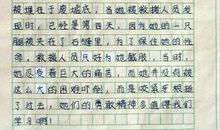 被埋在于废墟底，当她被救援人员发
现时，已经是第四天，因为她的一只
腿被夹在了石缝里，为了保住她的生
命，救援人员底好为她截肢，当时，
她忍受着巨大的痛苦，而她并没有被
这么大的困难吓倒，而是咬紧牙根挺
了过去，她们的勇敢精神多值得我们
学习啊！